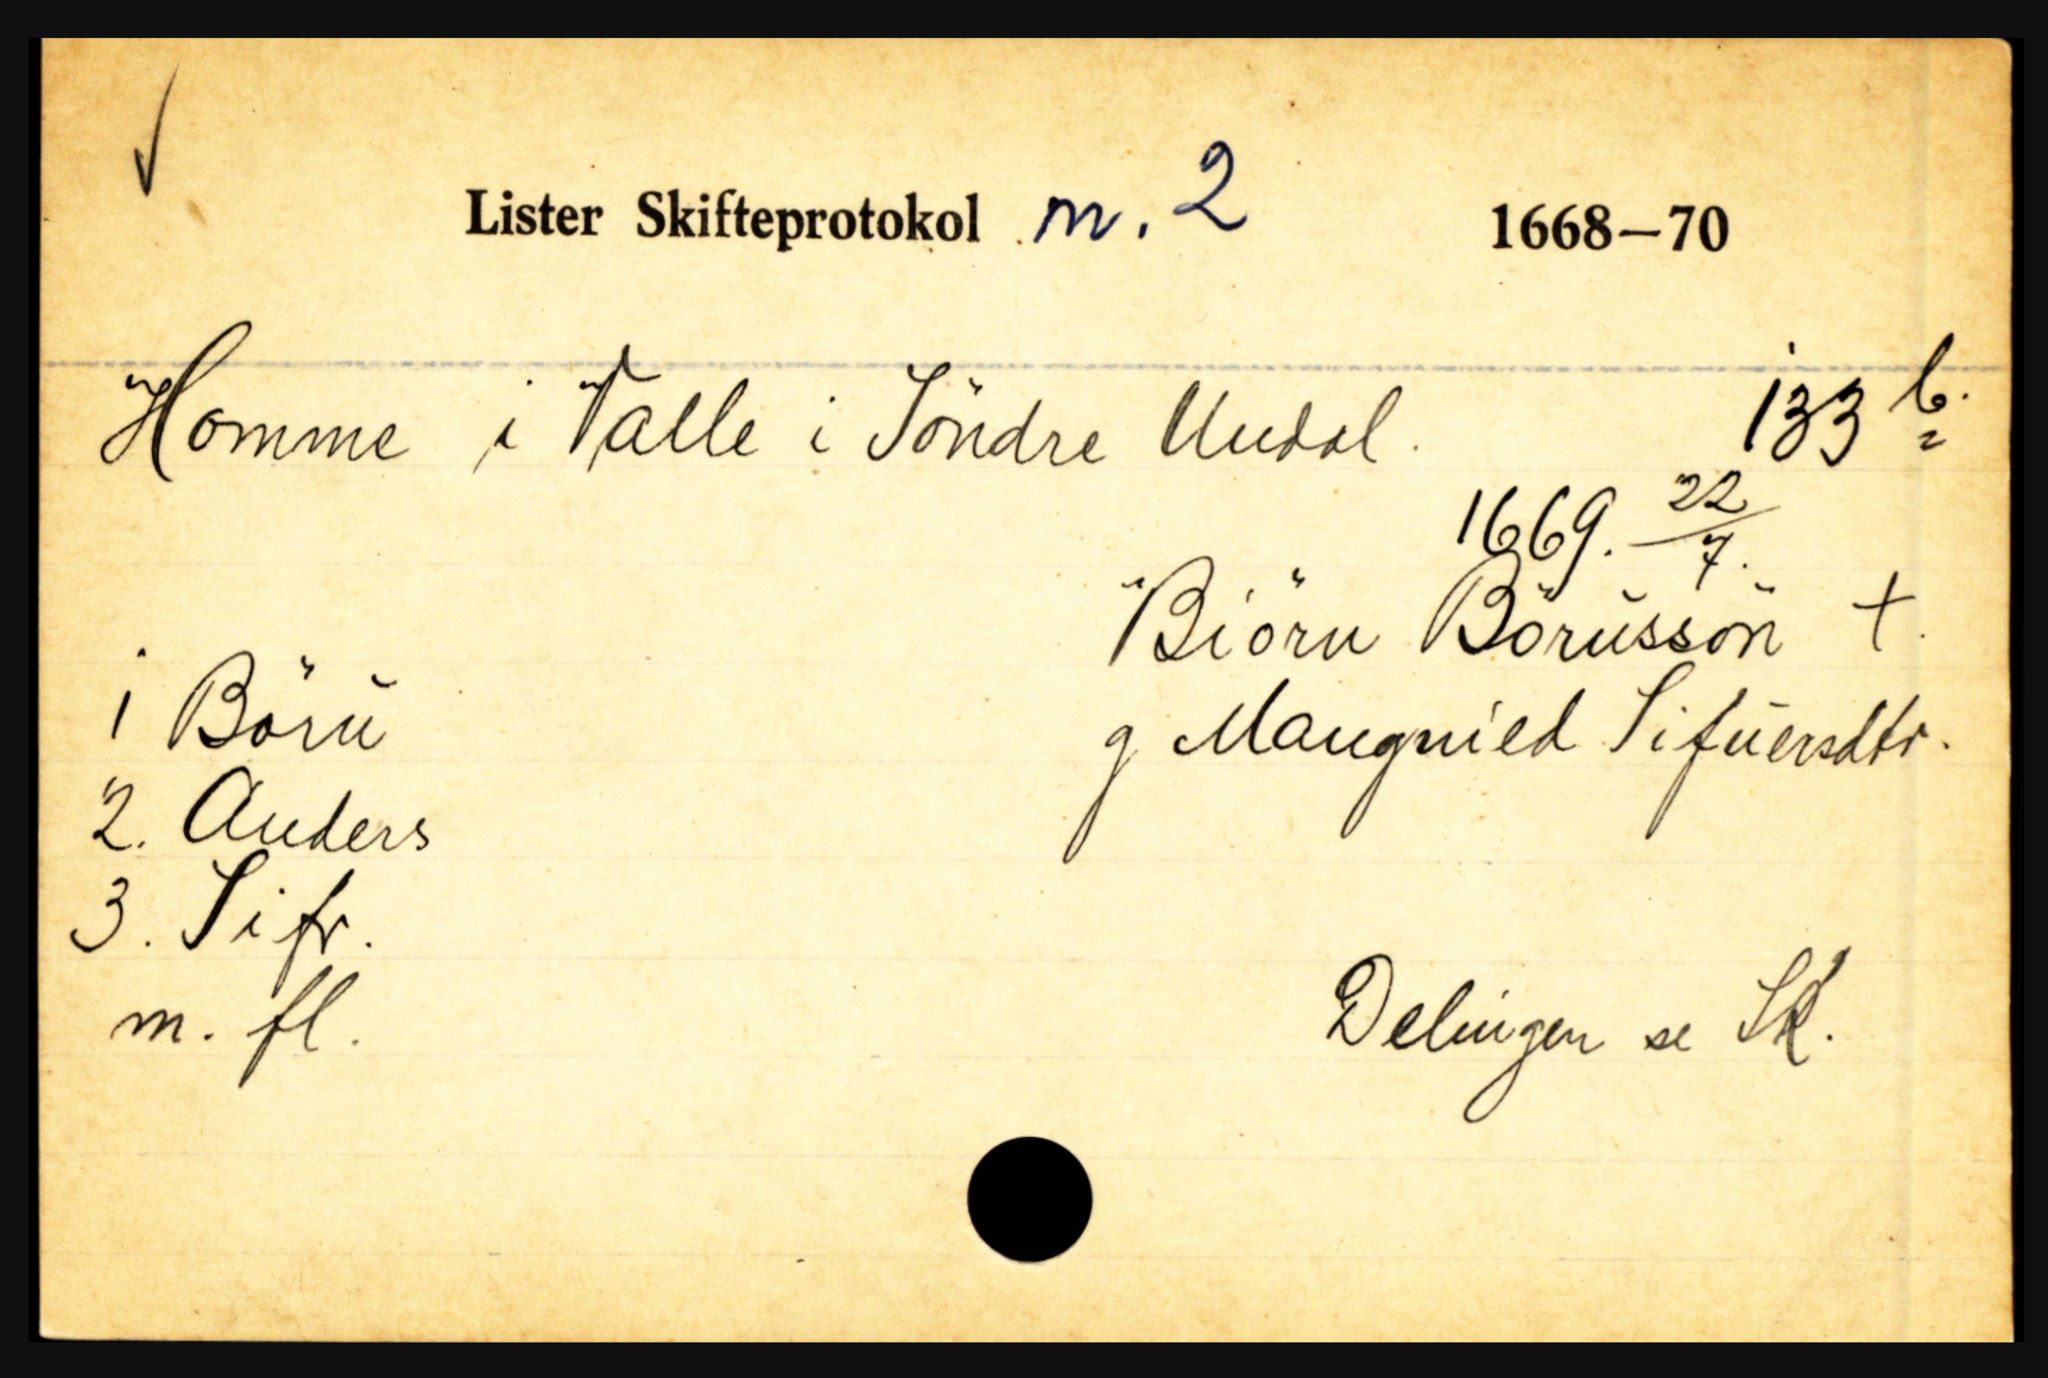 Lister Skifteprotokol n. 2 1668–70
Homme i Valle i Söndre Undal. 133 b.
1669. 22/7.
Biörn Börnssön +.
g Mangnild Sifuersdtr.
1 Börn
2. Anders
3. Sifr.
m. fl.
Delingen se Sk.